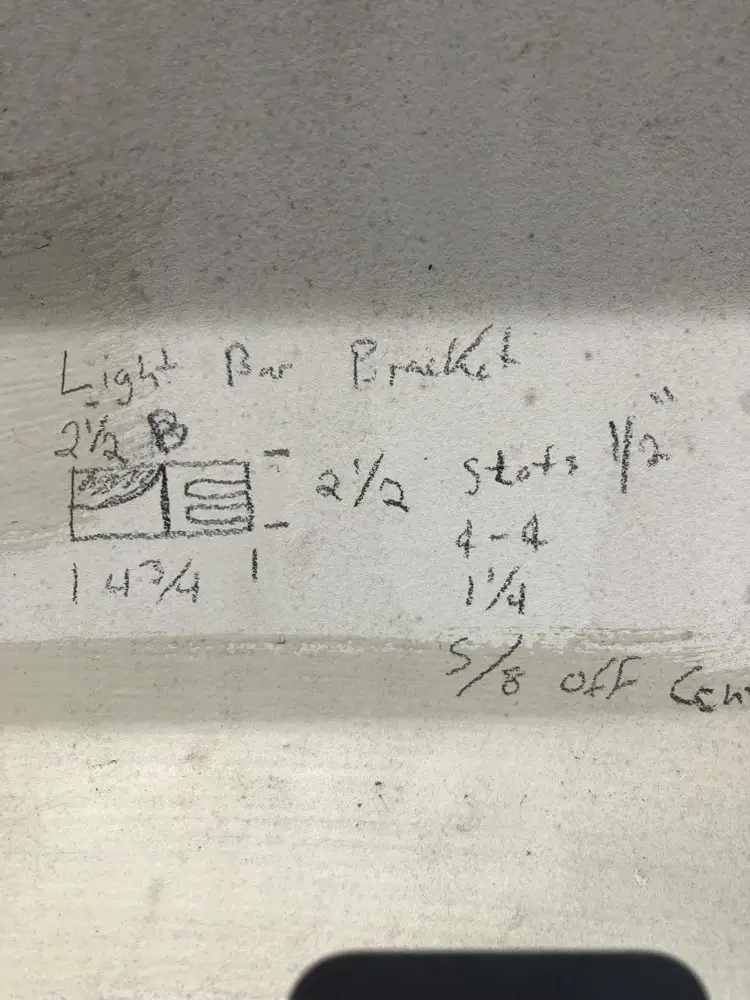 Light Bar Bracket
2 1/2 B
2 1/2 Slots 1/2"
4-4
4 3/4
1 1/4
5/8 off Cen